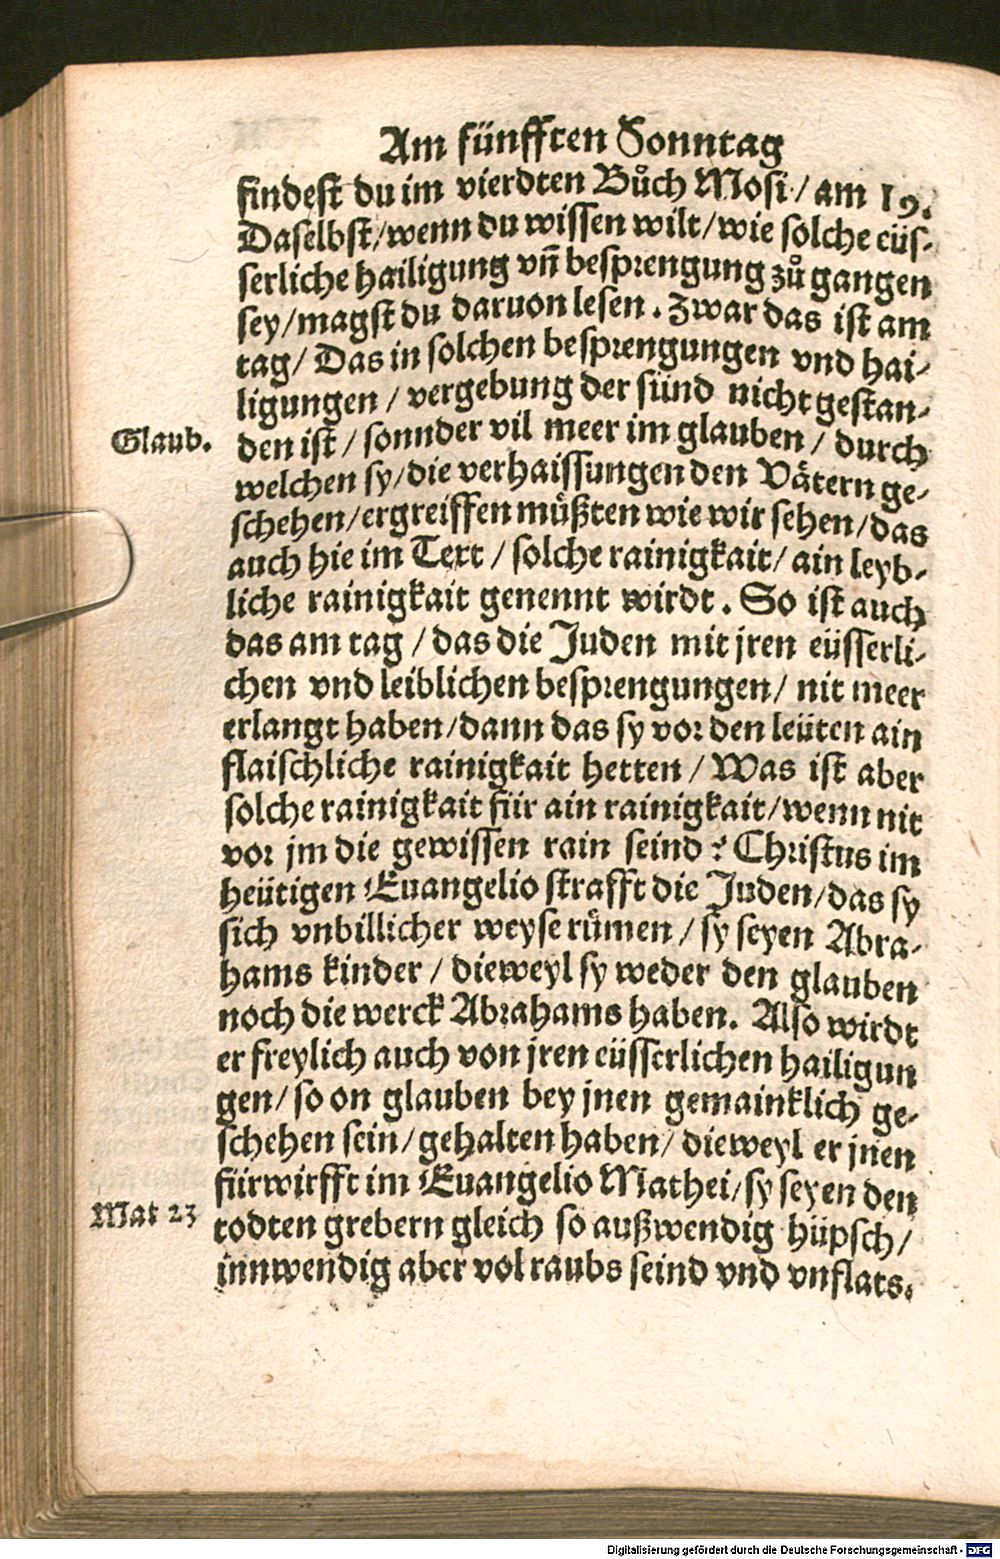 Am fünfften Sonntag
findest du im vierdten Bůch Mosi / am 19.
Daselbst / wenn du wissen wilt / wie solche eüs-
serliche hailigung vñ besprengung zů gangen
sey / magst du daruon lesen . Zwar das ist am
tag / Das in solchen besprengungen vnd hai-
ligungen / vergebung der sünd nicht gestan-
Glaub.
den ist / sonnder vil meer im glauben / durch
welchen sy / die verhaissungen den Vätern ge-
schehen / ergreiffen müßten wie wir sehen / das
auch hie im Text / solche rainigkait / ain leyb-
liche rainigkait genennt wirdt . So ist auch
das am tag / das die Juden mit jren eüsserli-
chen vnd leiblichen besprengungen / nit meer
erlangt haben / dann das sy vor den leüten ain
flaischliche rainigkait hetten / Was ist aber
solche rainigkait für ain rainigkait / wenn nit
vor jm die gewissen rain seind ? Christus im
heütigen Euangelio strafft die Juden / das sy
sich vnbillicher weyse rümen / sy seyen Abra-
hams kinder / dieweyl sy weder den glauben
noch die werck Abrahams haben. Also wirdt
er freylich auch von jren eüsserlichen hailigun
gen / so on glauben bey jnen gemainklich ge-
schehen sein / gehalten haben / dieweyl er jnen
fürwirfft im Euangelio Mathei / sy seyen den
Mat 23
todten grebern gleich so außwendig hüpsch /
innwendig aber vol raubs seind vnd vnflats.
Digitalisierung gefördert durch die Deutsche Forschungsgemeinschaft - DFG